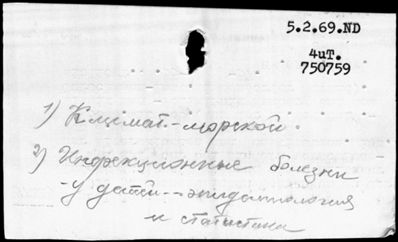 5.2.69.ND
4иТ.
750759
1) Климат.-морской.
2) Инфекционные болезни
-у детей--эпидемиология
и статистика